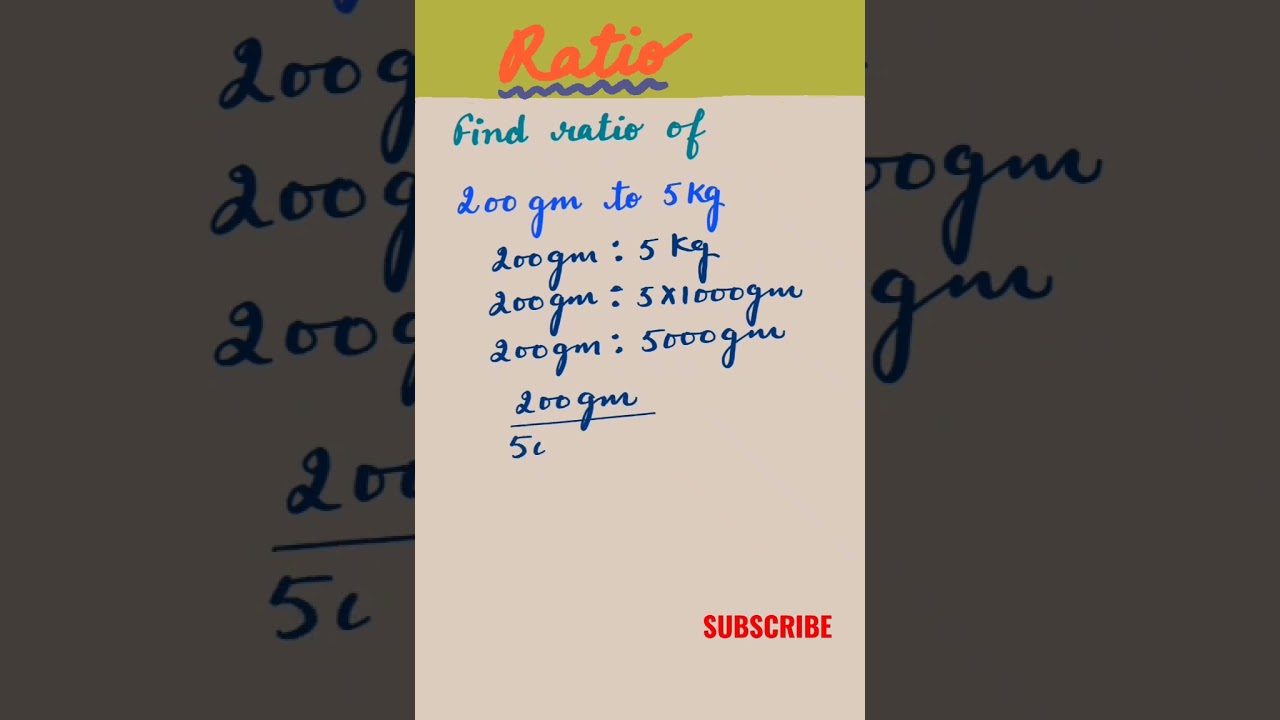 Ratio
Find ratio of
200 gm to 5 Kg
200gm : 5 Kg
200gm : 5X1000gm
200gm : 5000gm
200gm
5
SUBSCRIBE